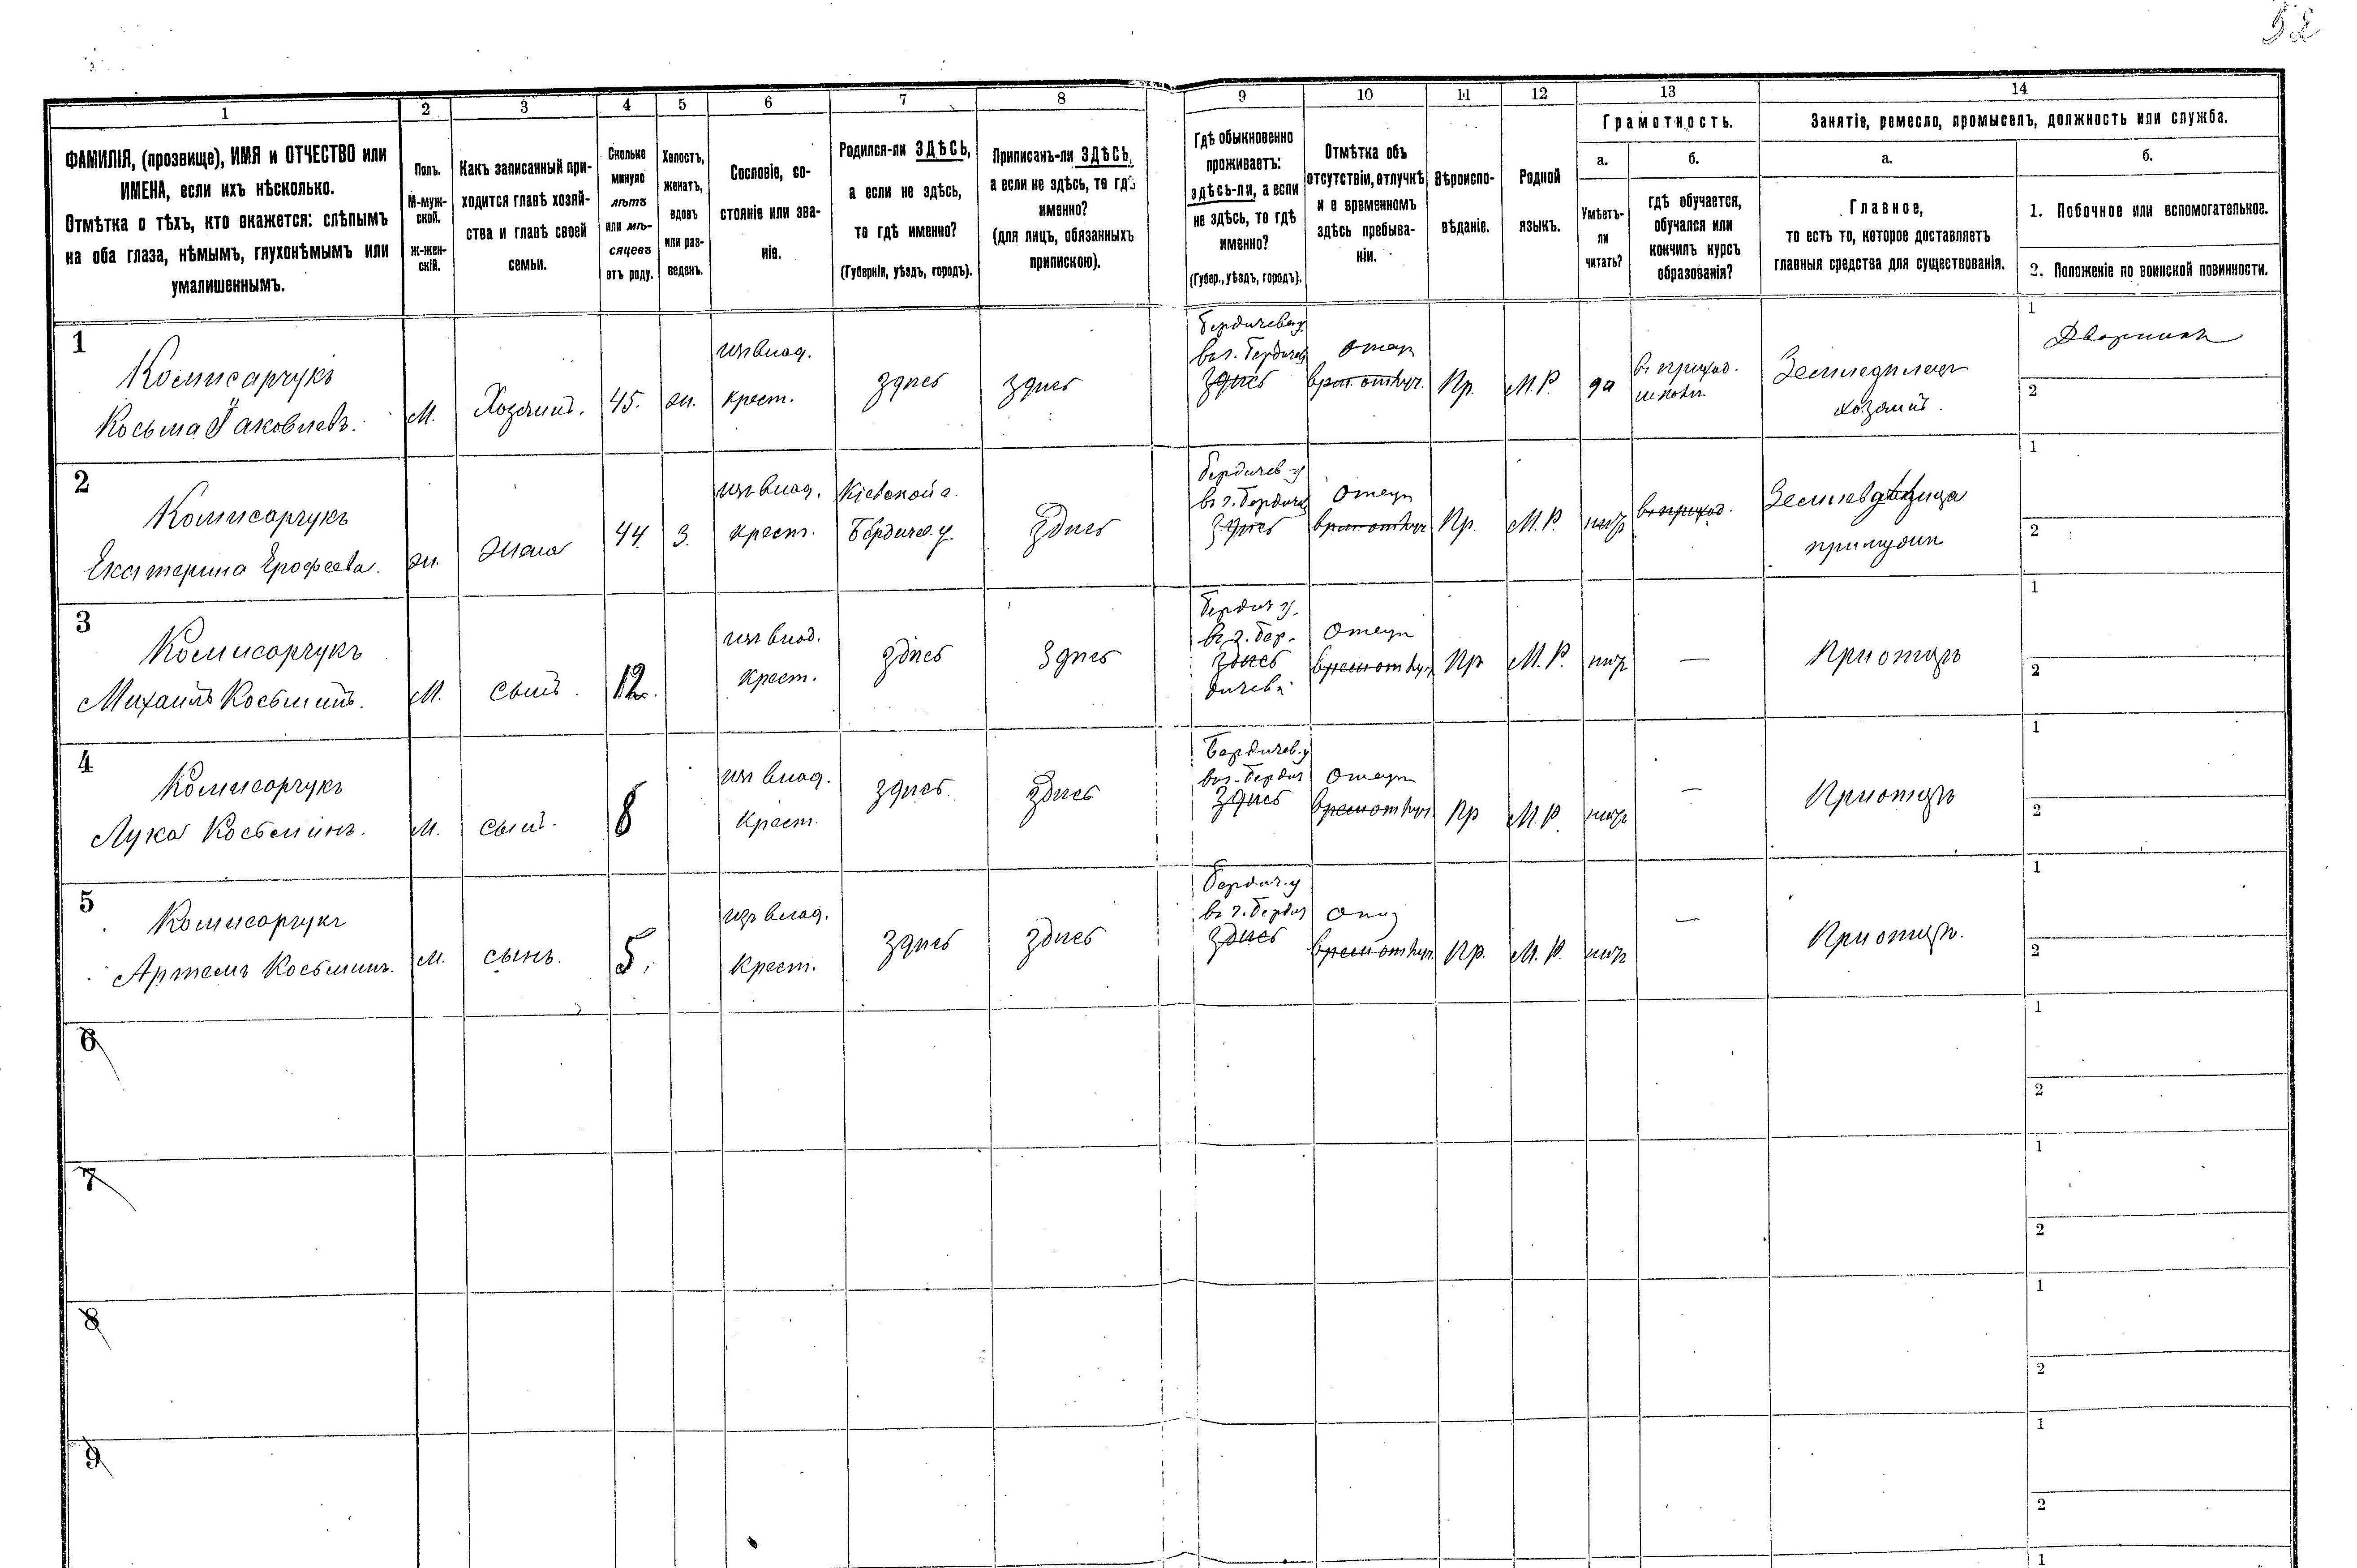 52
1 2 3 4 5 6 7 8 9 10 11 12 13 14
ФАМИЛІЯ, (прозвище), ИМЯ и ОТЧЕСТВО или
ИМЕНА, если ихъ нѣсколько.
Отмѣтка о тѣхъ, кто окажется: слѣпымъ
на оба глаза, нѣмымъ, глухонѣмымъ или
умалишеннымъ.
Полъ.
М-муж-
ской.
ж-жен-
скій.
Какъ записанный при-
ходится главѣ хозяй-
ства и главѣ своей
семьи.
Сколько
минуло
лѣтъ
или мѣ-
сяцевъ
отъ роду.
Холостъ,
женатъ,
вдовъ
или раз-
веденъ.
Сословіе, со-
стояніе или зва-
ніе.
Родился-ли ЗДѢСЬ,
а если не здѣсь,
то гдѣ именно?
(Губернія, уѣздъ, городъ).
Приписанъ-ли ЗДѢСЬ,
а если не здѣсь, то гдѣ
именно?
(для лицъ, обязанныхъ
припискою).
Гдѣ обыкновенно
проживаетъ:
здѣсь-ли, а если
не здѣсь, то гдѣ
именно?
(Губер., уѣздъ, городъ).
Отмѣтка объ
отсутствіи, отлучкѣ
и о временномъ
здѣсь пребыва-
ніи.
Вѣроиспо-
вѣданіе.
Родной
языкъ.
Грамотность.
а.
Умѣетъ-
ли
читать?
б.
гдѣ обучается,
обучался или
кончилъ курсъ
образованія?
Занятіе, ремесло, промыселъ, должность или служба.
а.
Главное,
то есть то, которое доставляетъ
главныя средства для существованія.
б.
1. Побочное или вспомогательное.
2. Положеніе по воинской повинности.
1
Комисарчукъ
Косьма Яковлевъ.
М.
Хозяинъ.
45.
ж.
изъ влад.
крест.
здѣсь
здѣсь
въ г. Бердичев
здѣсь
врем. отлуч.
Пр.
М.Р.
да
въ приход.
школѣ
Земледѣлец
хозяинъ.
1
Дворникъ
2
2
Комисарчукъ
Екатерина Ерофеева.
ж.
жена
44
З.
изъ влад.
крест.
Кіевской г.
Бердич. у.
здѣсь
Бердичев у
въ г. Бердичев
здѣсь
врем. отлуч
Пр.
М.Р.
нѣт
въ приход.
1
2
3
Комисарчукъ
Михаилъ Косьминъ.
М.
сынъ.
12.
изъ влад.
крест.
здѣсь
здѣсь
Бердич у.
въ г. Бер-
здѣсь
дичевѣ
врем отлуч
Пр
М.Р.
нѣт
—
При отцѣ
1
2
4
Комисарчукъ
Лука Косьминъ.
М.
сынъ.
8
изъ влад.
крест.
здѣсь
здѣсь
Бердичев. у
в г. Бердич
здѣсь
врем отлуч
Пр
М.Р.
нѣт
—
При отцѣ
1
2
5
Комисарчукъ
Артемъ Косьминъ.
М.
сынъ.
5.
изъ влад.
крест.
здѣсь
здѣсь
Бердич. у
въ г. Бердич
здѣсь
врем отлуч.
Пр.
М.Р.
нѣт
—
При отцѣ.
1
2
6
1
2
7
1
2
8
1
2
9
1
2
1